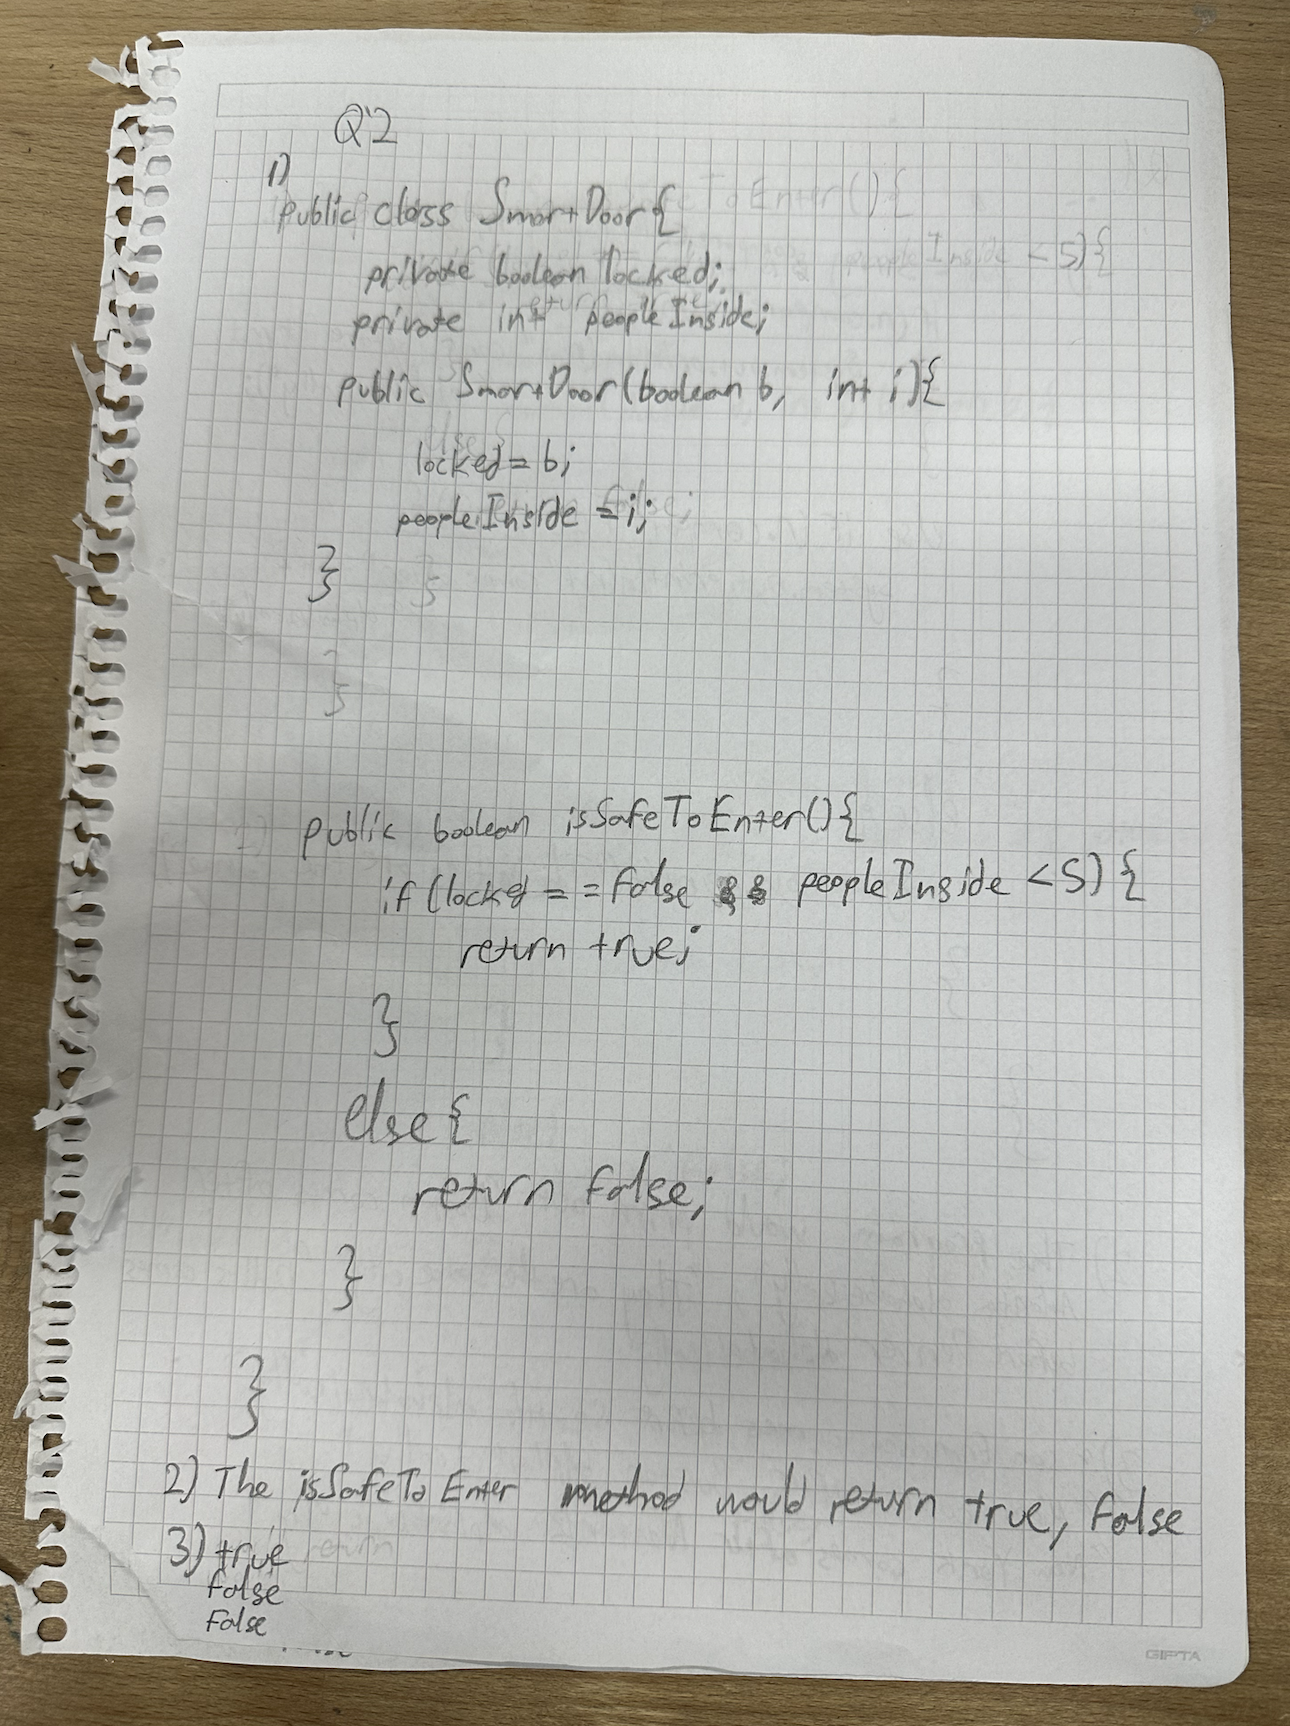 Q2
1)
public class SmartDoor{
private boolean locked;
private int peopleInside;
public SmartDoor(boolean b, int i){
locked = b;
peopleInside = i;
}
public boolean isSafeToEnter(){
if (locked == false && peopleInside < 5) {
return true;
}
else {
return false;
}
}
2) The isSafeToEnter method would return true, false
3) true
false
false
GIPTA